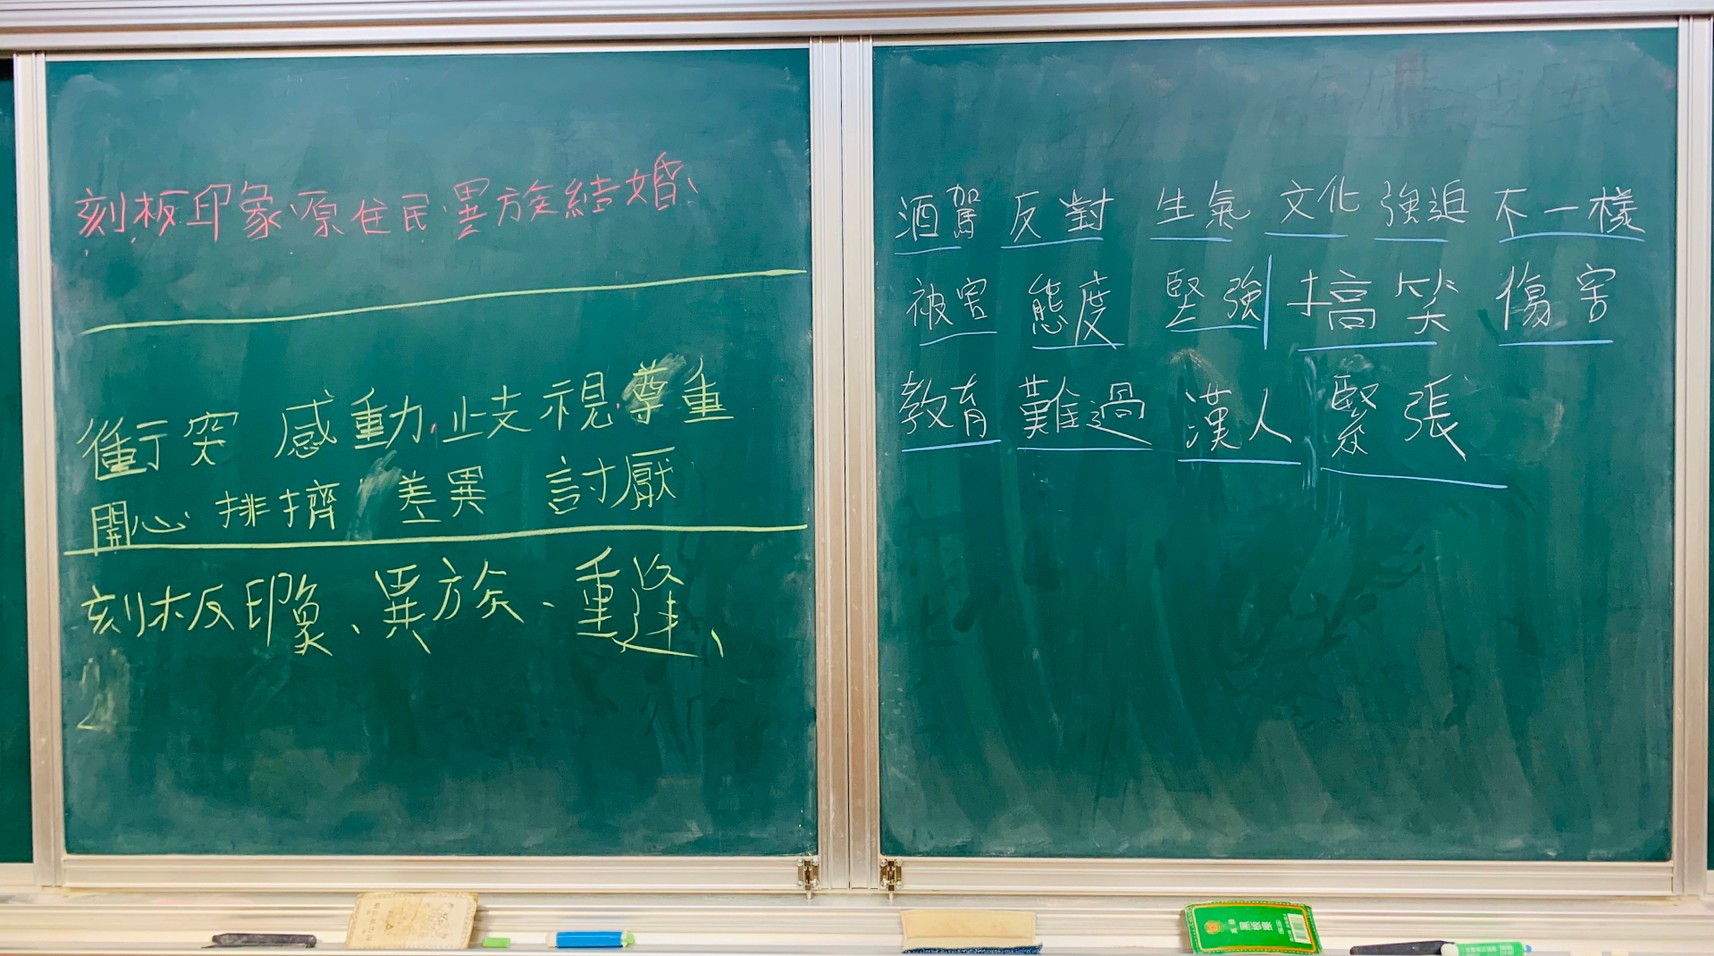 刻板印象、原住民、異族結婚、
衝突 感動 歧視 尊重
開心 排擠 差異 討厭
刻板印象、異族、重逢、
酒駕 反對 生氣 文化 強迫 不一樣
被害 態度 堅強 搞笑 傷害
教育 難過 漢人 緊張